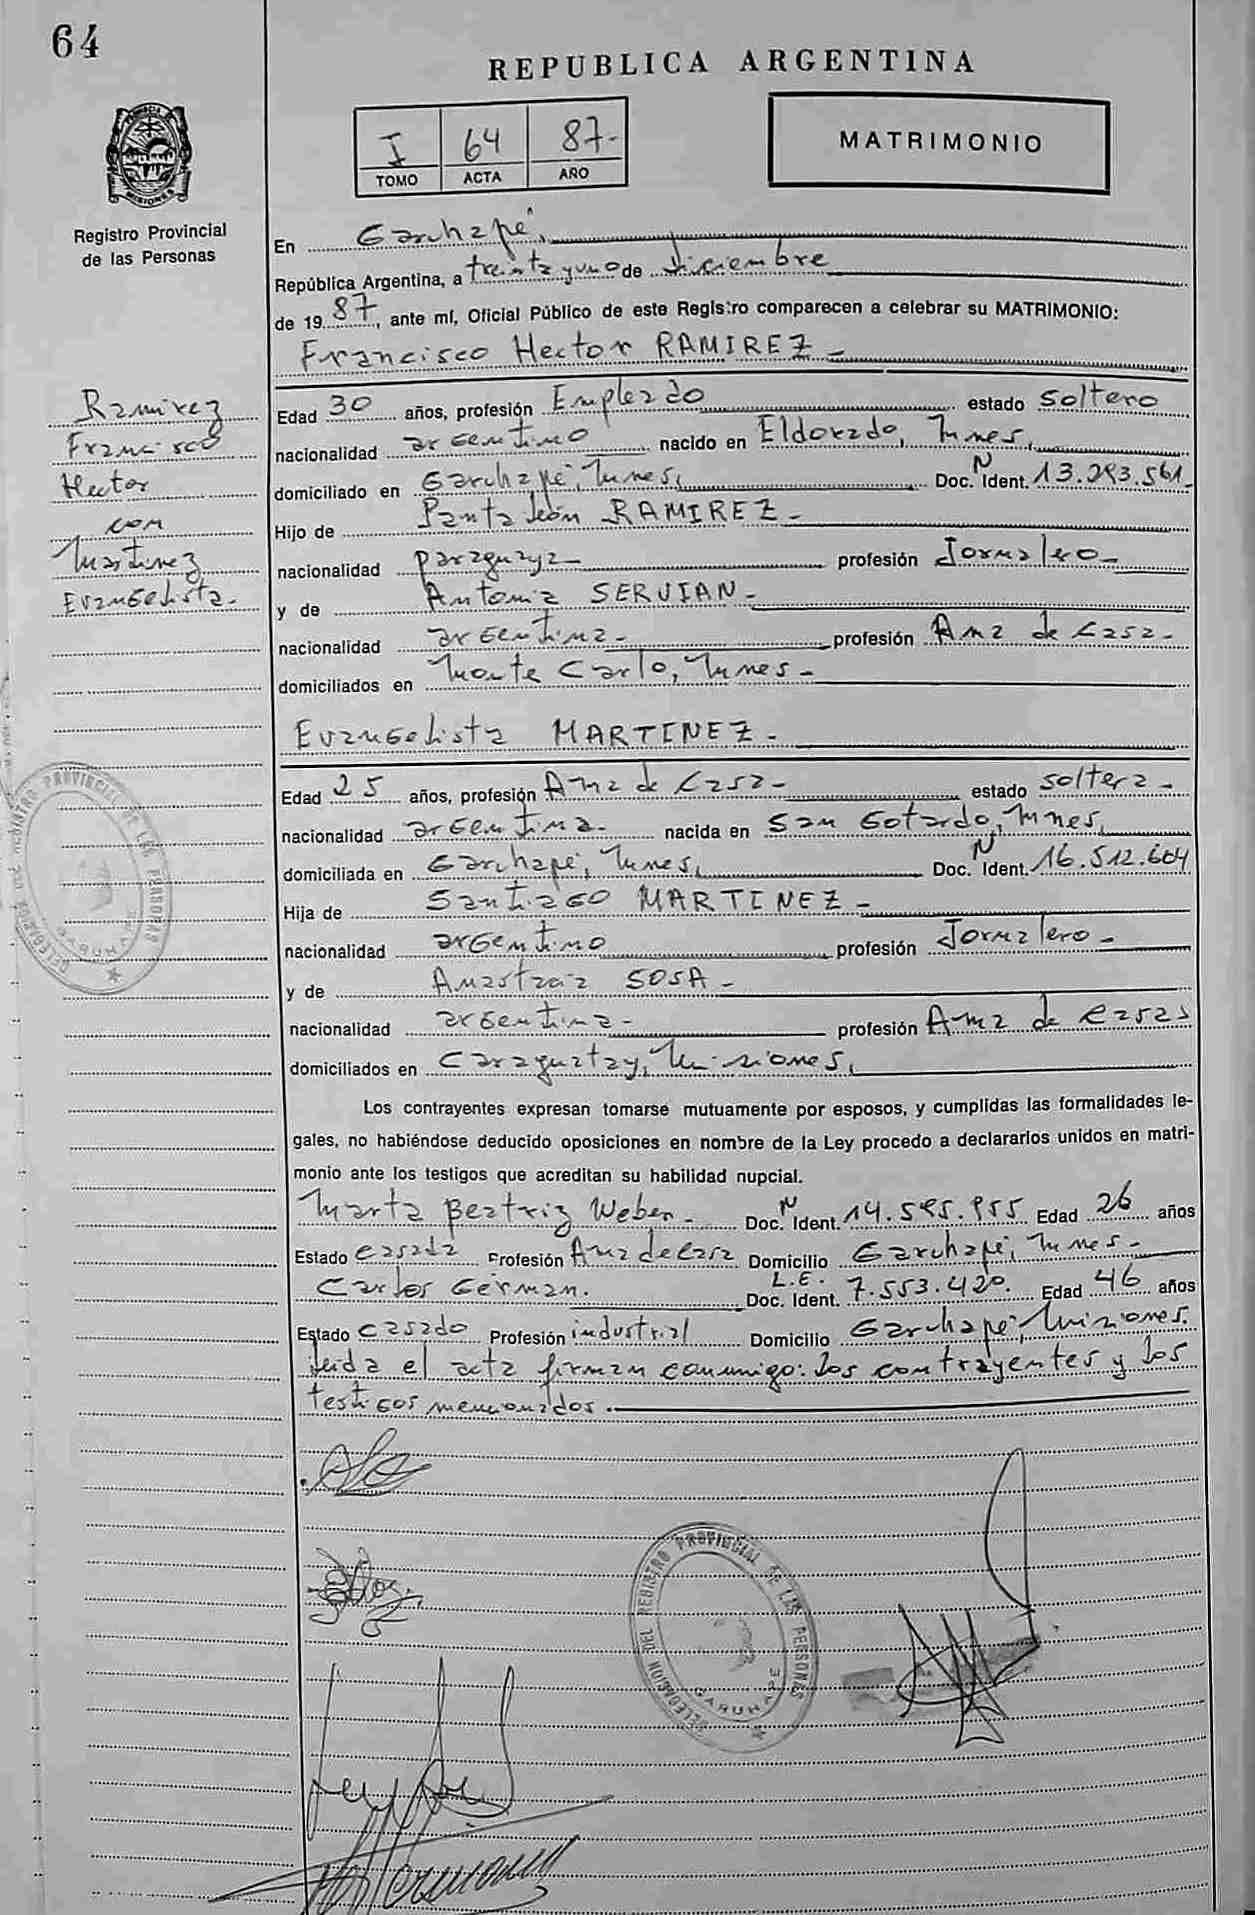 64
REPUBLICA ARGENTINA
I 64 87-
TOMO ACTA AÑO
MATRIMONIO
MISIONES
Registro Provincial
de las Personas
En Garuhapé,
República Argentina, a treinta y uno de diciembre
de 19 87, ante mí, Oficial Público de este Registro comparecen a celebrar su MATRIMONIO:
Francisco Hector RAMIREZ -
Ramirez
Francisco
Hector
con
Martinez
Evangelista.
Edad 30 años, profesión Empleado estado soltero
nacionalidad argentino nacido en Eldorado, Mnes,
domiciliado en Garuhapé, Mnes, Doc. N Ident. 13.293.561-
Hijo de Pantaleón RAMIREZ -
nacionalidad paraguaya- profesión Jornalero-
y de Antonia SERVIAN -
nacionalidad argentina- profesión Ama de casa-
domiciliados en Monte Carlo, Mnes -
Evangelista MARTINEZ -
Edad 25 años, profesión Ama de casa- estado soltera -
nacionalidad argentina- nacida en San Gotardo, Mnes,
domiciliada en Garuhapé, Mnes, Doc. N Ident. 16.512.604
Hija de Santiago MARTINEZ -
nacionalidad argentino profesión Jornalero -
y de SOSA -
nacionalidad argentina- profesión Ama de casas
domiciliados en Caraguatay, Misiones,
Los contrayentes expresan tomarse mutuamente por esposos, y cumplidas las formalidades le-
gales, no habiéndose deducido oposiciones en nombre de la Ley procedo a declararlos unidos en matri-
monio ante los testigos que acreditan su habilidad nupcial.
Marta Beatriz Weber - Doc. N Ident. 14.595.955 Edad 26 años
Estado casada Profesión Ama de casa Domicilio Garuhapé, Mnes -
Carlos German. L.E. Doc. Ident. 7.553.420. Edad 46 años
Estado casado Profesión industrial Domicilio Garuhapé, Misiones.
leida el acta firman conmigo: los contrayentes y los
testigos mencionados.
DELEGACION DEL REGISTRO PROVINCIAL DE LAS PERSONAS
GARUHAPE
DELEGACION DEL REGISTRO PROVINCIAL DE LAS PERSONAS
GARUHAPE